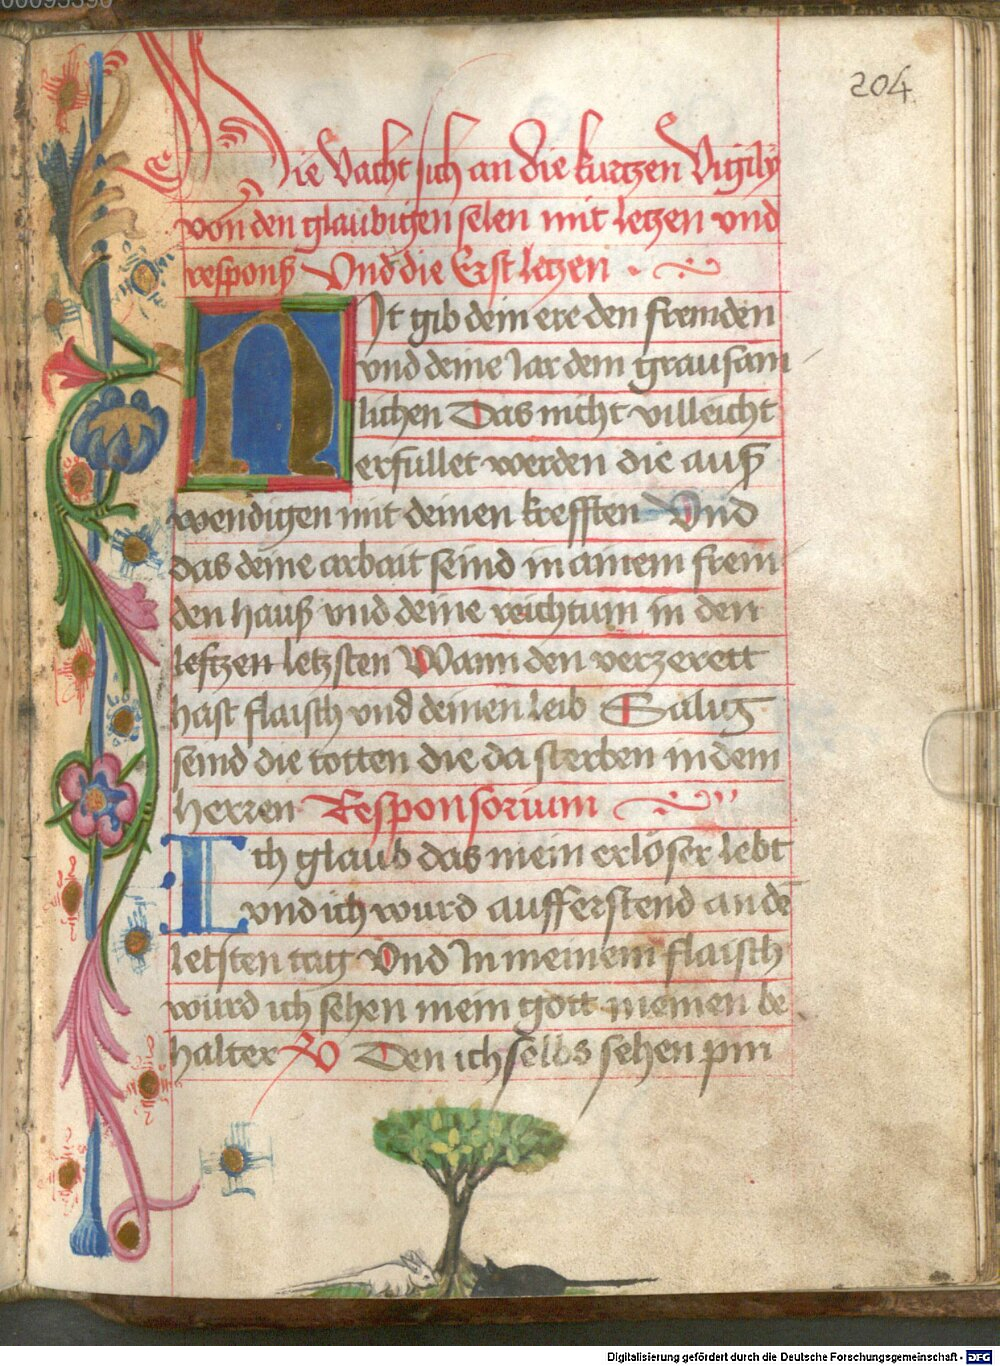 00095390
204
Hie vacht sich an die kurtzen Vigily
von den glaubigen selen mit letzen vnd
respons Vnd die Erst letzen .
Nit gib dein ere den fremden
vnd deine Jar dem grausam
lichen Das nicht villeicht
erfullet werden die auß
wendigen mit deinen krefften Vnd
das deine arbait seind in ainem frem
den hauß vnd deine reichtum in den
leftzen letzsten Wann den verzerett
hast flaisch vnd deinen leib Salig
seind die totten die da sterben in dem
herren Responsorium
Ich glaub das mein erlöser lebt
vnd ich wurd aufferstend an dē
letsten tag Vnd In meinem flaisch
wurd ich sehen mein gott meinen be
halter Den ich selbs sehen pin
Digitalisierung gefördert durch die Deutsche Forschungsgemeinschaft - DFG